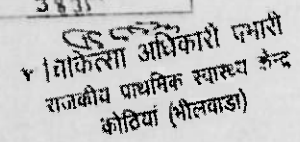 3831
चिकित्सा अधिकारी प्रभारी
राजकीय प्राथमिक स्वास्थ्य केन्द्र
कोठियां (भीलवाडा)